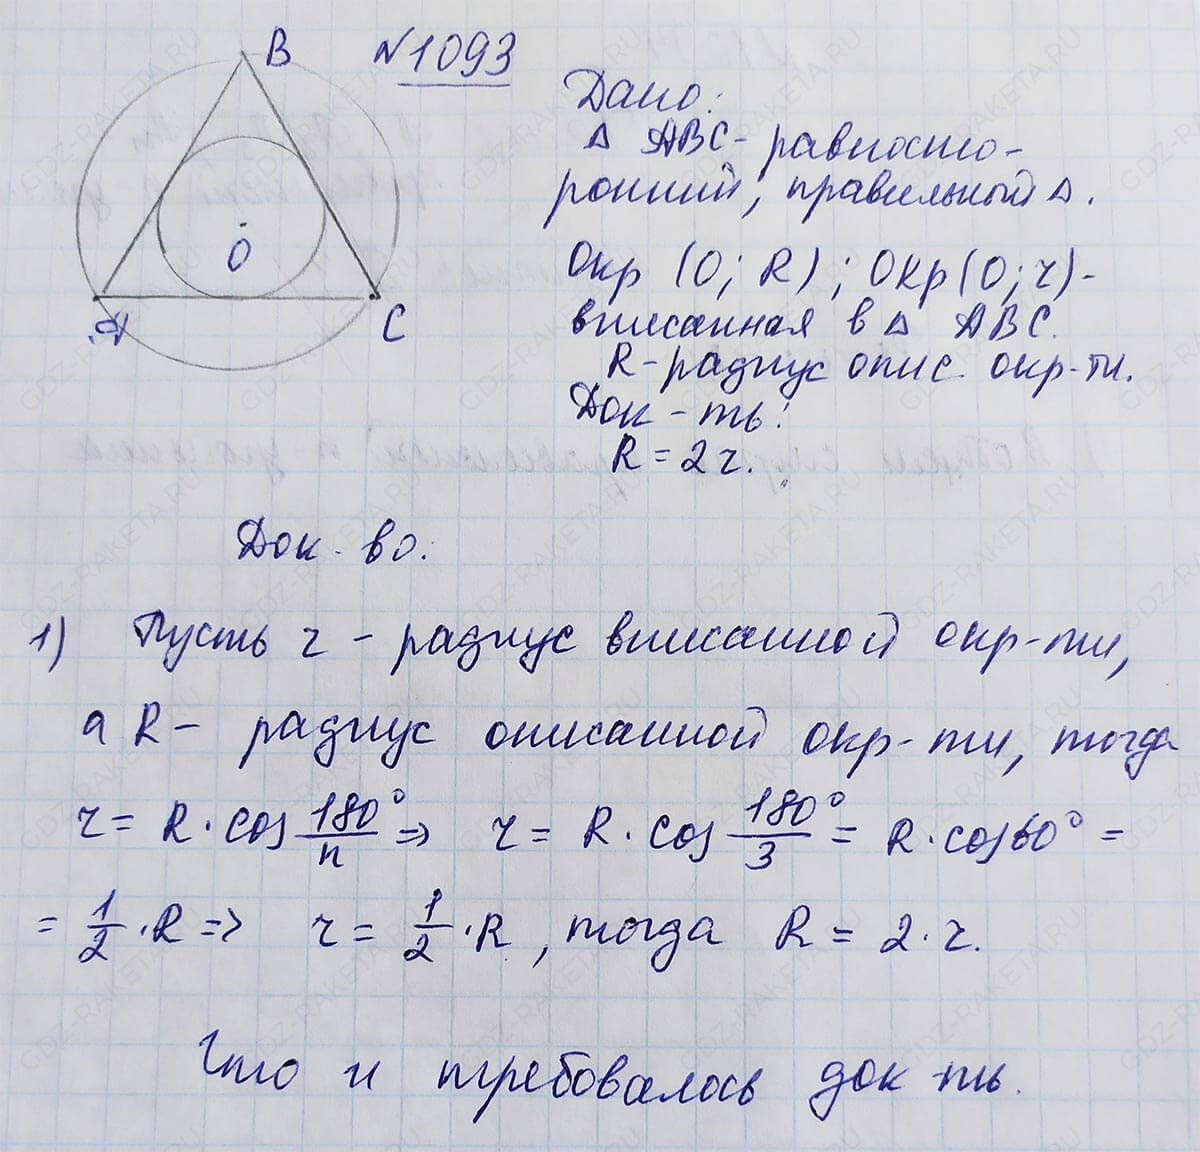 N1093
B
O
A
C
Дано:
Δ ABC - равносто-
ронний, правильный Δ.
Окр (O; R); Окр (O; r) -
вписанная в Δ ABC.
R - радиус опис. окр-ти.
Док-ть:
R = 2r.
Док-во.
1) Пусть r - радиус вписанной окр-ти,
а R - радиус описанной окр-ти, тогда
r = R · cos 180°/n => r = R · cos 180°/3 = R · cos60° =
= 1/2 · R => r = 1/2 · R, тогда R = 2 · r.
Что и требовалось док-ть.
GDZ-RAKETA.RU